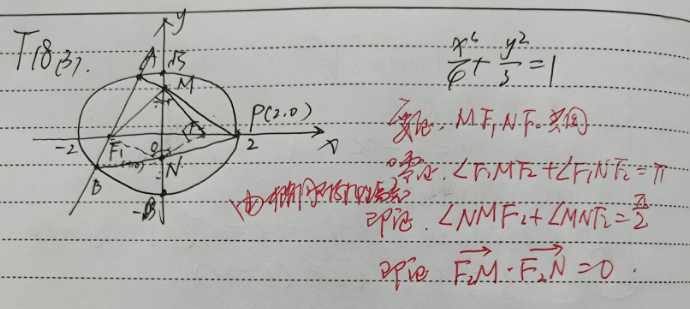 T18(3).
y
A
√3
M
P(2,0)
-2
F₁
F₂
2
x
(-1,0)
N
B
-√3
x²/4 + y²/3 = 1
要证. M F₁ N F₂ 共圆
只需证. ∠F₁MF₂ + ∠F₁NF₂ = π
即证. ∠NMF₂ + ∠MNF₂ = π/2
即证 F₂M · F₂N = 0.